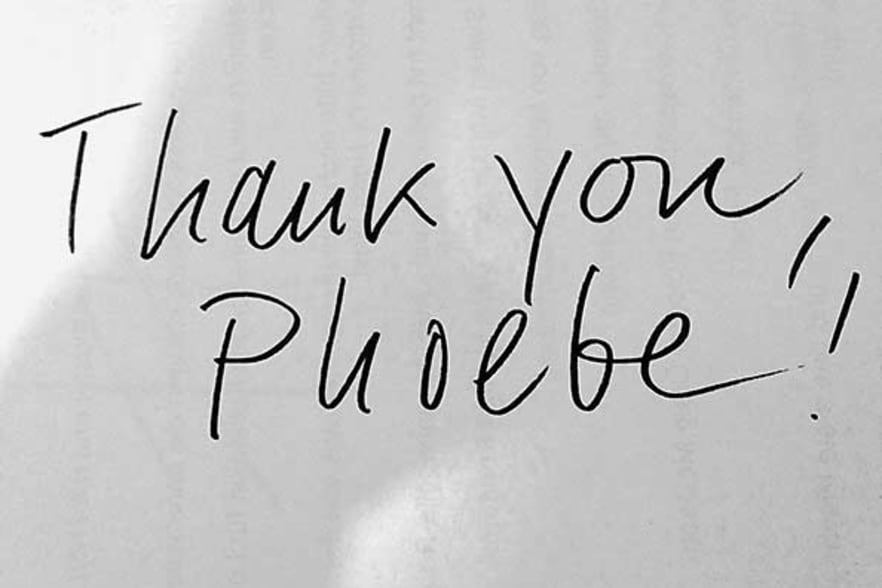 Thank you,
Phoebe!